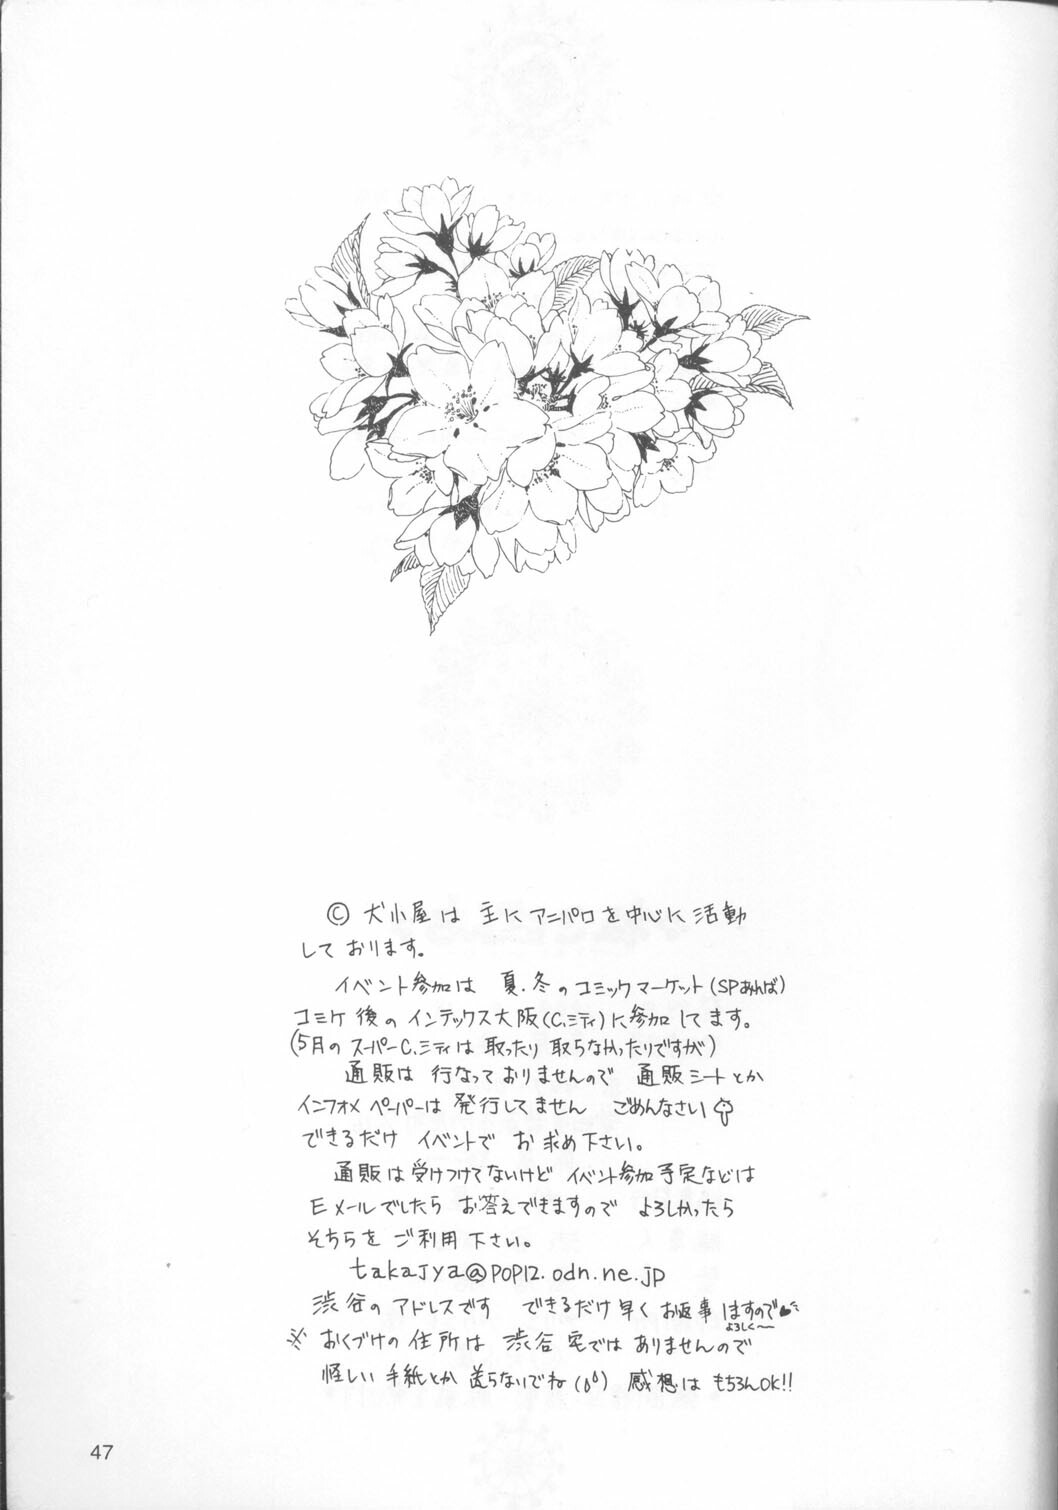 © 犬小屋は 主に アニパロを中心に 活動
して おります。
イベント参加は 夏.冬のコミックマーケット(SPあれば)
コミケ 後の インテックス大阪(C.シティ)に参加 してます。
(5月の スーパーC.シティは 取ったり 取らなかったりですが)
通販は 行なって おりませんので 通販シートとか
インフォメ ペーパーは 発行してません ごめんなさい
できるだけ イベントで お 求め下さい。
通販は受けつけてないけど イベント参加予定などは
Eメールでしたら お答えできますので よろしかったら
そちらを ご利用 下さい。
takajya@POP12.odn.ne.jp
渋谷の アドレスです できるだけ早く お返事 はすので
よろしく〜
※ おくづけの 住所は 渋谷 宅では ありませんので
怪しい 手紙とか 送らないでね 感想は もちろんOK!!
47